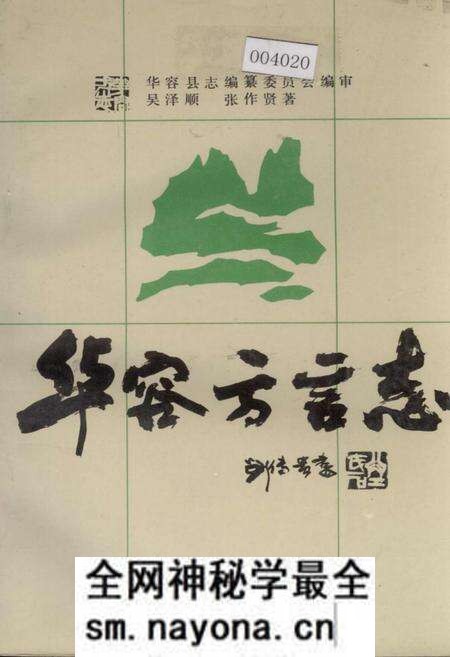 004020
华容县志编纂委员会编审
吴泽顺 张作贤著
华容方言志
全网神秘学最全
sm.nayona.cn